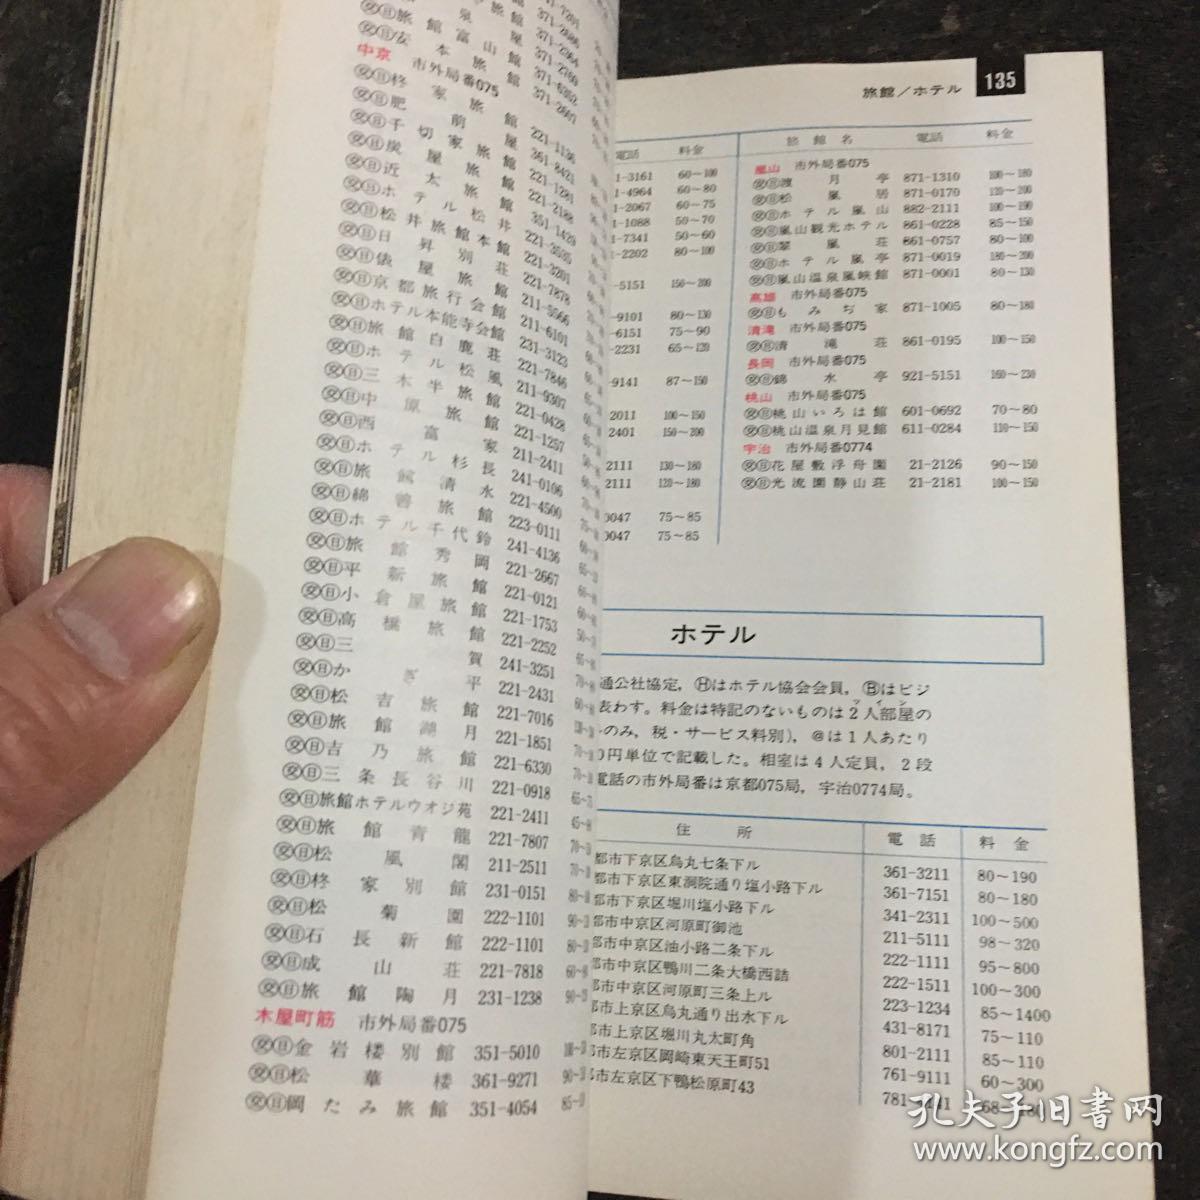 ㊛㊐旅館富山館 371-2169
㊛㊐安本旅館 371-2607
中京 市外局番075
㊛㊐柊家旅館 221-1136
㊛㊐肥前屋 361-8421
㊛㊐千切家旅館 221-1281
㊛㊐炭屋旅館 221-2188
㊛㊐近太旅館 351-1429
㊛㊐ホテル松井 221-3535
㊛㊐松井旅館本館 221-3201
㊛㊐日昇別荘 221-7878
㊛㊐俵屋旅館 211-5566
㊛㊐京都旅行会館 211-6101
㊛㊐ホテル本能寺会館 231-3123
㊛㊐旅館白鹿荘 221-7846
㊛㊐ホテル松風 211-9307
㊛㊐三木半旅館 221-0428
㊛㊐中原旅館 221-1257
㊛㊐西富家 211-2411
㊛㊐ホテル杉長 241-0106
㊛㊐旅館清水 221-4500
㊛㊐綿善旅館 223-0111
㊛㊐ホテル千代鈴 241-4136
㊛㊐旅館秀岡 221-2667
㊛㊐平新旅館 221-0121
㊛㊐小倉屋旅館 221-1753
㊛㊐高橋旅館 221-2252
㊛㊐三賀 241-3251
㊛㊐かぎ平 221-2431
㊛㊐松吉旅館 221-7016
㊛㊐旅館湖月 221-1851
㊛㊐吉乃旅館 221-6330
㊛㊐三条長谷川 221-0918
㊛㊐旅館ホテルウオジ苑 221-2411
㊛㊐旅館青龍 221-7807
㊛㊐松風閣 211-2511
㊛㊐柊家別館 231-0151
㊛㊐松菊園 222-1101
㊛㊐石長新館 222-1101
㊛㊐成山荘 221-7818
㊛㊐旅館陶月 231-1238
木屋町筋 市外局番075
㊛㊐金岩楼別館 351-5010
㊛㊐松華楼 361-9271
㊛㊐岡たみ旅館 351-4054
旅館／ホテル 135
電話 料金
1-3161 60〜100
1-4964 60〜80
1-2067 60〜75
1-1088 50〜70
1-7341 50〜60
1-2202 80〜100
-5151 150〜200
-9101 80〜130
-6151 75〜90
-2231 65〜120
-9141 87〜150
2011 100〜150
2401 150〜200
2111 130〜180
2111 120〜180
0047 75〜85
0047 75〜85
旅館名 電話 料金
嵐山 市外局番075
㊛㊐渡月亭 871-1310 100〜180
㊛㊐松嵐居 871-0170 120〜200
㊛㊐ホテル嵐山 882-2111 100〜190
㊛㊐嵐山観光ホテル 861-0228 85〜150
㊛㊐翠嵐荘 861-0757 80〜100
㊛㊐ホテル嵐亭 871-0019 180〜200
㊛㊐嵐山温泉嵐峡館 871-0001 80〜130
高雄 市外局番075
㊛㊐もみぢ家 871-1005 80〜180
清滝 市外局番075
㊛㊐清滝荘 861-0195 100〜150
長岡 市外局番075
㊛㊐錦水亭 921-5151 160〜230
桃山 市外局番075
㊛㊐桃山いろは館 601-0692 70〜80
㊛㊐桃山温泉月見館 611-0284 110〜150
宇治 市外局番0774
㊛㊐花屋敷浮舟園 21-2126 90〜150
㊛㊐光流園静山荘 21-2181 100〜150
ホテル
通公社協定，Ⓗはホテル協会会員，Ⓑはビジ
表わす。料金は特記のないものは2人部屋の
のみ，税・サービス料別），@は1人あたり
0円単位で記載した。相室は4人定員，2段
電話の市外局番は京都075局，宇治0774局。
住所 電話 料金
都市下京区烏丸七条下ル 361-3211 80〜190
都市下京区東洞院通り塩小路下ル 361-7151 80〜180
都市下京区堀川塩小路下ル 341-2311 100〜500
都市中京区河原町御池 211-5111 98〜320
都市中京区油小路二条下ル 222-1111 95〜800
都市中京区鴨川二条大橋西詰 222-1511 100〜300
都市中京区河原町三条上ル 223-1234 85〜1400
都市上京区烏丸通り出水下ル 431-8171 75〜110
都市上京区堀川丸太町角 801-2111 85〜110
都市左京区岡崎東天王町51 761-9111 60〜300
都市左京区下鴨松原町43
孔夫子旧书网
www.kongfz.com